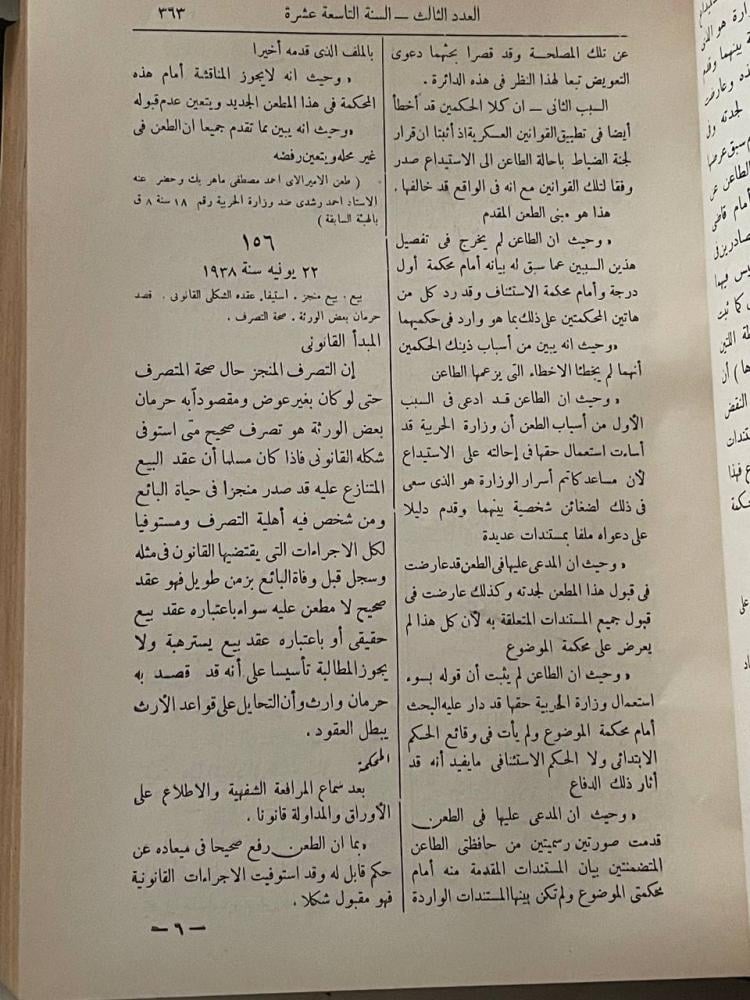 العدد الثالث — السنة التاسعة عشرة
٣٦٣
عن تلك المصلحة وقد قصرا بحثهما دعوى
التعويض تبعا لهذا النظر فى هذه الدائرة .
السبب الثانى — ان كلا الحكمين قد أخطأ
أيضا فى تطبيق القوانين العسكرية اذ أثبتا ان قرار
لجنة الضباط باحالة الطاعن الى الاستيداع صدر
وفقا لتلك القوانين مع انه فى الواقع قد خالفها .
هذا هو مبنى الطعن المقدم
« وحيث ان الطاعن لم يخرج فى تفصيل
هذين السببين عما سبق له بيانه أمام محكمة أول
درجة وأمام محكمة الاستئناف وقد رد كل من
هاتين المحكمتين على ذلك بما هو وارد فى حكميهما
« وحيث انه يبين من أسباب ذينك الحكمين
أنهما لم يخطئا الاخطاء التى يزعمها الطاعن
« وحيث ان الطاعن قد ادعى فى السبب
الأول من أسباب الطعن أن وزارة الحربية قد
أساءت استعمال حقها فى إحالته على الاستيداع
لأن مساعد كاتم أسرار الوزارة هو الذى سعى
فى ذلك لضغائن شخصية بينهما وقدم دليلا
على دعواه ملفا بمستندات عديدة
« وحيث ان المدعى عليها فى الطعن قد عارضت
فى قبول هذا المطعن لجدته وكذلك عارضت فى
قبول جميع المستندات المتعلقة به لأن كل هذا لم
يعرض على محكمة الموضوع
« وحيث ان الطاعن لم يثبت أن قوله بسوء
استعمال وزارة الحربية حقها قد دار عليه البحث
أمام محكمة الموضوع ولم يأت فى وقائع الحكم
الابتدائى ولا الحكم الاستئنافى مايفيد أنه قد
أثار ذلك الدفاع
« وحيث ان المدعى عليها فى الطعن
قدمت صورتين رسميتين من حافظتى الطاعن
المتضمنتين بيان المستندات المقدمة منه أمام
محكمتى الموضوع ولم تكن بينها المستندات الواردة
بالملف الذى قدمه أخيرا
« وحيث انه لايجوز المناقشة أمام هذه
المحكمة فى هذا المطعن الجديد ويتعين عدم قبوله
« وحيث انه يبين مما تقدم جميعا ان الطعن فى
غير محله ويتعين رفضه
( طعن الاميرالاى احمد مصطفى ماهر بك وحضر عنه
الاستاذ احمد رشدى ضد وزارة الحربية رقم ١٨ سنة ٨ ق
بالهيئة السابقة )
١٥٦
٢٢ يونيه سنة ١٩٣٨
بيع . بيع منجز . استيفاء عقده الشكل القانونى . قصد
حرمان بعض الورثة . صحة التصرف .
المبدأ القانونى
إن التصرف المنجز حال صحة المتصرف
حتى لو كان بغير عوض ومقصوداً به حرمان
بعض الورثة هو تصرف صحيح متى استوفى
شكله القانونى فاذا كان مسلما أن عقد البيع
المتنازع عليه قد صدر منجزاً فى حياة البائع
ومن شخص فيه أهلية التصرف ومستوفيا
لكل الاجراءات التى يقتضيها القانون فى مثله
وسجل قبل وفاة البائع بزمن طويل فهو عقد
صحيح لا مطعن عليه سواء باعتباره عقد بيع
حقيقى أو باعتباره عقد بيع يستر هبة ولا
يجوز المطالبة تأسيسا على أنه قد قصد به
حرمان وارث وأن التحايل على قواعد الأرث
يبطل العقود .
المحكمة
بعد سماع المرافعة الشفهية والاطلاع على
الأوراق والمداولة قانونا .
« بما ان الطعن رفع صحيحا فى ميعاده عن
حكم قابل له وقد استوفيت الاجراءات القانونية
فهو مقبول شكلا .
— ٩ —